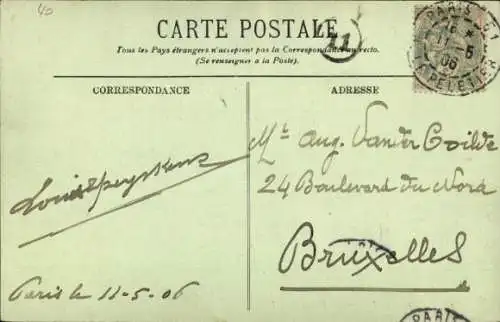 40
CARTE POSTALE
11
Tous les Pays étrangers n'acceptent pas la Correspondance au recto.
(Se renseigner à la Poste).
CORRESPONDANCE
ADRESSE
PARIS
11 5
06
R. LE PELETIER
Mr Aug. Vander
24 Boulevard du Nord
Bruxelles
Louis
Paris le 11-5-06
PARIS